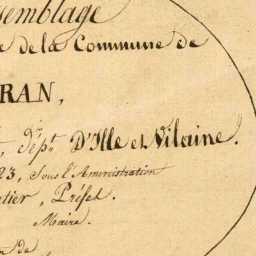 semblage
e de la Commune de
RAN,
, Dépt. D'Ille et Vilaine.
23, Sous l'Aministration
tier, Préfet.
Maire.
de